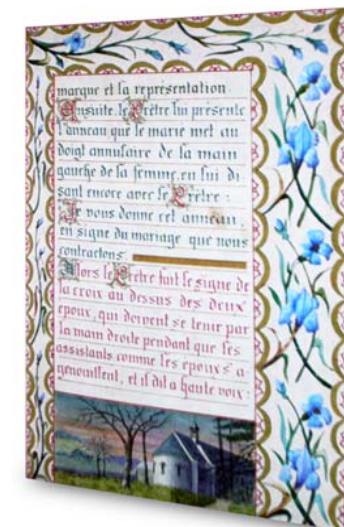 marque et la représentation
Ensuite, le Prêtre lui présente
l'anneau que le marié met au
doigt annulaire de la main
gauche de la femme, en lui di
sant encore avec le Prêtre :
Je vous donne cet anneau,
en signe du mariage que nous
contractons.
Alors le Prêtre fait le signe de
la croix au dessus des deux
epoux, qui doivent se tenir par
la main droite pendant que les
assistants comme les epoux s'a
genouillent, et il dit a haute voix :